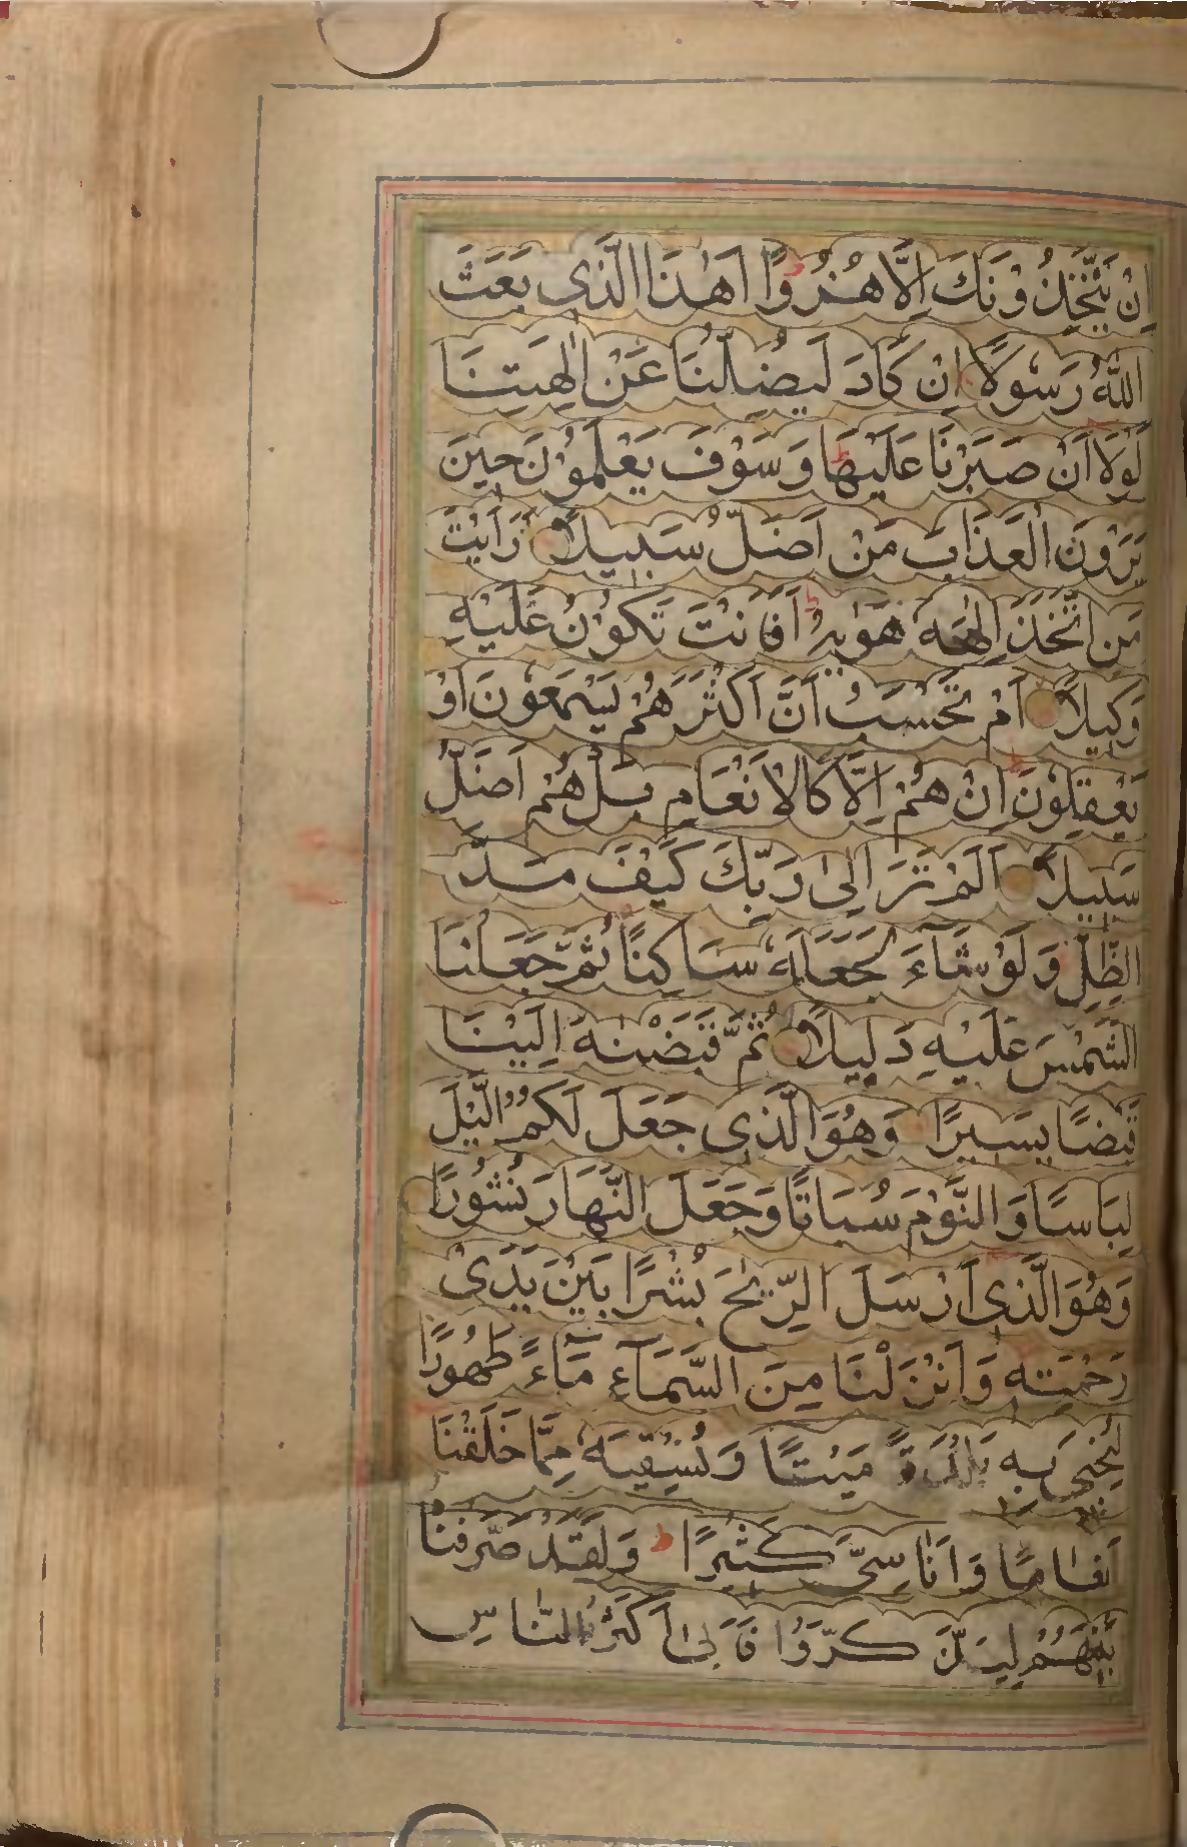 اِنْ يَتَّخِذُوْنَكَ اِلَّا هُزُوًا اَهٰذَا الَّذِى بَعَثَ
اللّٰهُ رَسُولًا اِنْ كَادَ لَيُضِلُّنَا عَنْ اٰلِهَتِنَا
لَوْلَا اَنْ صَبَرْنَا عَلَيْهَا وَسَوْفَ يَعْلَمُوْنَ حِينَ
يَرَوْنَ الْعَذَابَ مَنْ اَضَلُّ سَبِيلًا اَرَاَيْتَ
مَنِ اتَّخَذَ اِلٰهَهُ هَوٰيهُ اَفَاَنْتَ تَكُوْنُ عَلَيْهِ
وَكِيلًا اَمْ تَحْسَبُ اَنَّ اَكْثَرَهُمْ يَسْمَعُونَ اَوْ
يَعْقِلُونَ اِنْ هُمْ اِلَّا كَالْاَنْعَامِ بَلْ هُمْ اَضَلُّ
سَبِيلًا اَلَمْ تَرَ اِلٰى رَبِّكَ كَيْفَ مَدَّ
الظِّلَّ وَلَوْ شَآءَ لَجَعَلَهُ سَاكِنًا ثُمَّ جَعَلْنَا
الشَّمْسَ عَلَيْهِ دَلِيلًا ثُمَّ قَبَضْنٰهُ اِلَيْنَا
قَبْضًا يَسِيرًا وَهُوَ الَّذِى جَعَلَ لَكُمُ الَّيْلَ
لِبَاسًا وَالنَّوْمَ سُبَاتًا وَجَعَلَ النَّهَارَ نُشُورًا
وَهُوَ الَّذِى اَرْسَلَ الرِّيٰحَ بُشْرًا بَيْنَ يَدَىْ
رَحْمَتِهِ وَاَنْزَلْنَا مِنَ السَّمَآءِ مَآءً طَهُورًا
لِنُحْيِىَ بِهِ بَلْدَةً مَيْتًا وَنُسْقِيَهُ مِمَّا خَلَقْنَا
اَنْعَامًا وَاَنَاسِىَّ كَثِيرًا وَلَقَدْ صَرَّفْنَاهُ
بَيْنَهُمْ لِيَذَّكَّرُوا فَاَبٰى اَكْثَرُ النَّاسِ